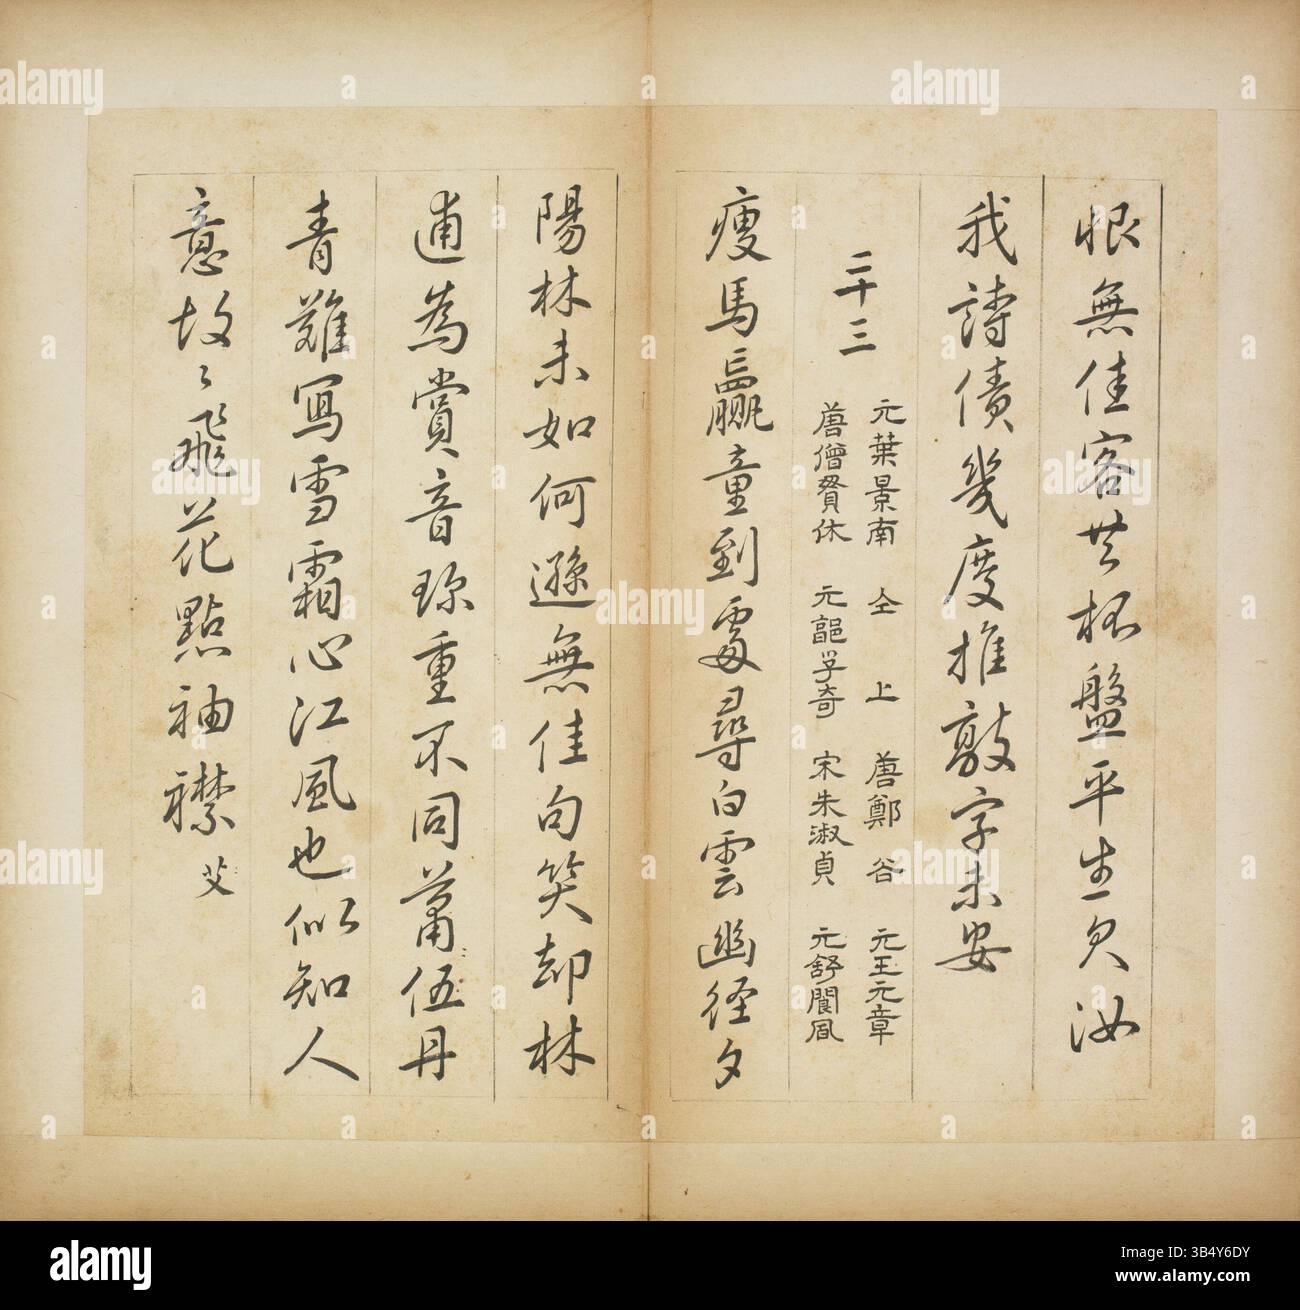 恨無佳客共杯盤平生欠汝
我詩債幾度推敲字未安
二十三
元葉景南 仝上 唐鄭谷 元王元章
唐僧貫休 元謳孚奇 宋朱淑貞 元舒閬風
瘦馬羸童到處尋白雲幽径夕
陽林未如何遜無佳句笑却林
逋為賞音珎重不同蕭伍丹
青難寫雪霜心江風也似知人
意故〻飛花點袖襟 艾
alamy
alamy
alamy
a
Image ID: 3B4Y6DY
www.alamy.com